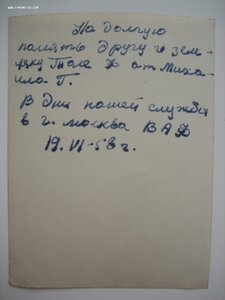 На Долгую
память другу и зем-
ляку Толе Ф от Миха-
ила Г.
В Дни нашей службы
в г. москва ВАФ
19. VI-58 г.